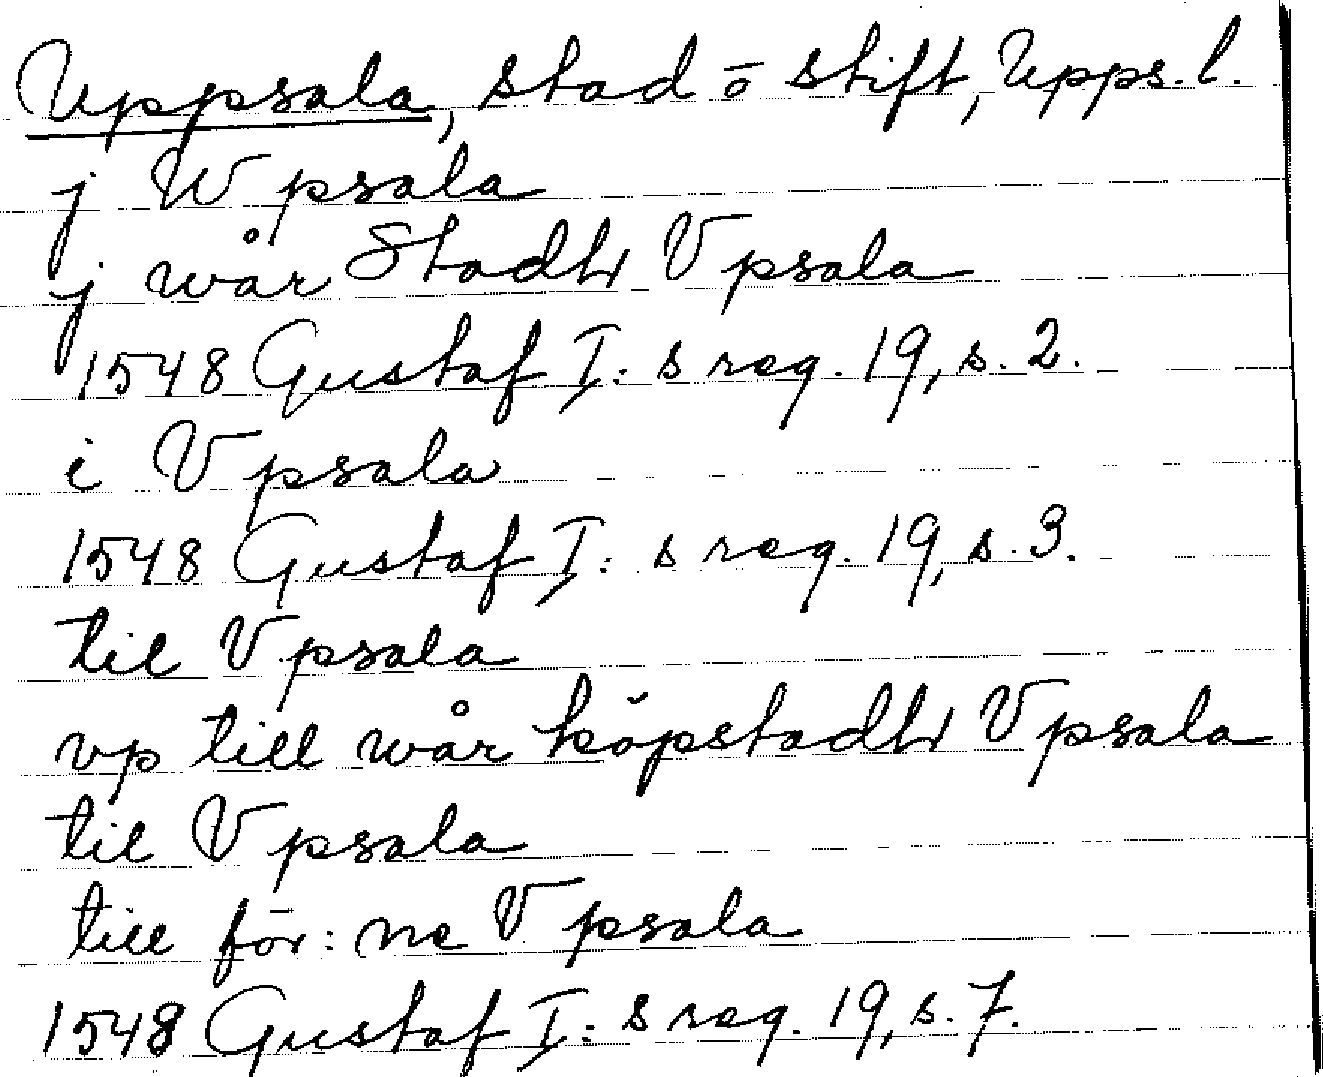 Uppsala, stad o stift, Upps. l.
j Wpsala
j wår Stadh Vpsala
1548 Gustaf I:s reg. 19, s. 2.
i Vpsala
1548 Gustaf I:s reg. 19, s. 3.
til Vpsala
vp till wår köpstadh Vpsala
til Vpsala
till för:ne Vpsala
1548 Gustaf I:s reg. 19, s. 7.